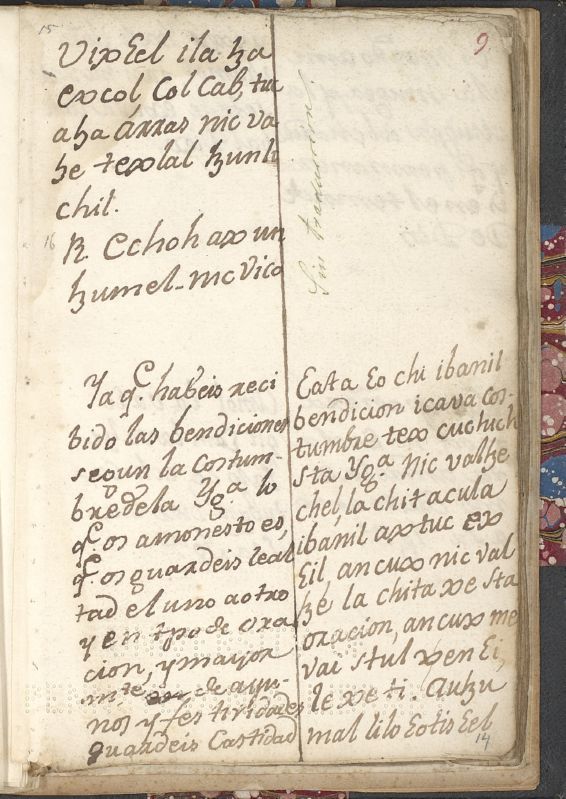 15
9
Vixɛel ila ꜩa
excol Col Cab, tu
aha árras nic va
he texlal ꜩunh
chil.
16 R. Cchohax un
ꜩumel-nic vico
Sin traduccion
Ya q.e habeis reci
bido las bendiciones
segun la Costum-
bre dela Yg.a lo
q.e os amonesto es,
q.e os guardeis leal
tad el uno ao tro
y en tpo de ora
cion, y mayor
m.te de ayu-
nos y festividades
guardeis Castidad
Eata Eo chi ibanil
bendicion icava Cos-
tumbre tex cuchuch
sta Yg.a Nic valꜩe
chel, la chitacula
ibanil axtuc ex
Eil, ancux nic val
ꜩe la chita xe sta
oracion, ancux me
vai stul xen Ei,
le xe ti. Auꜩu
mal lilo Eotis Eel
14